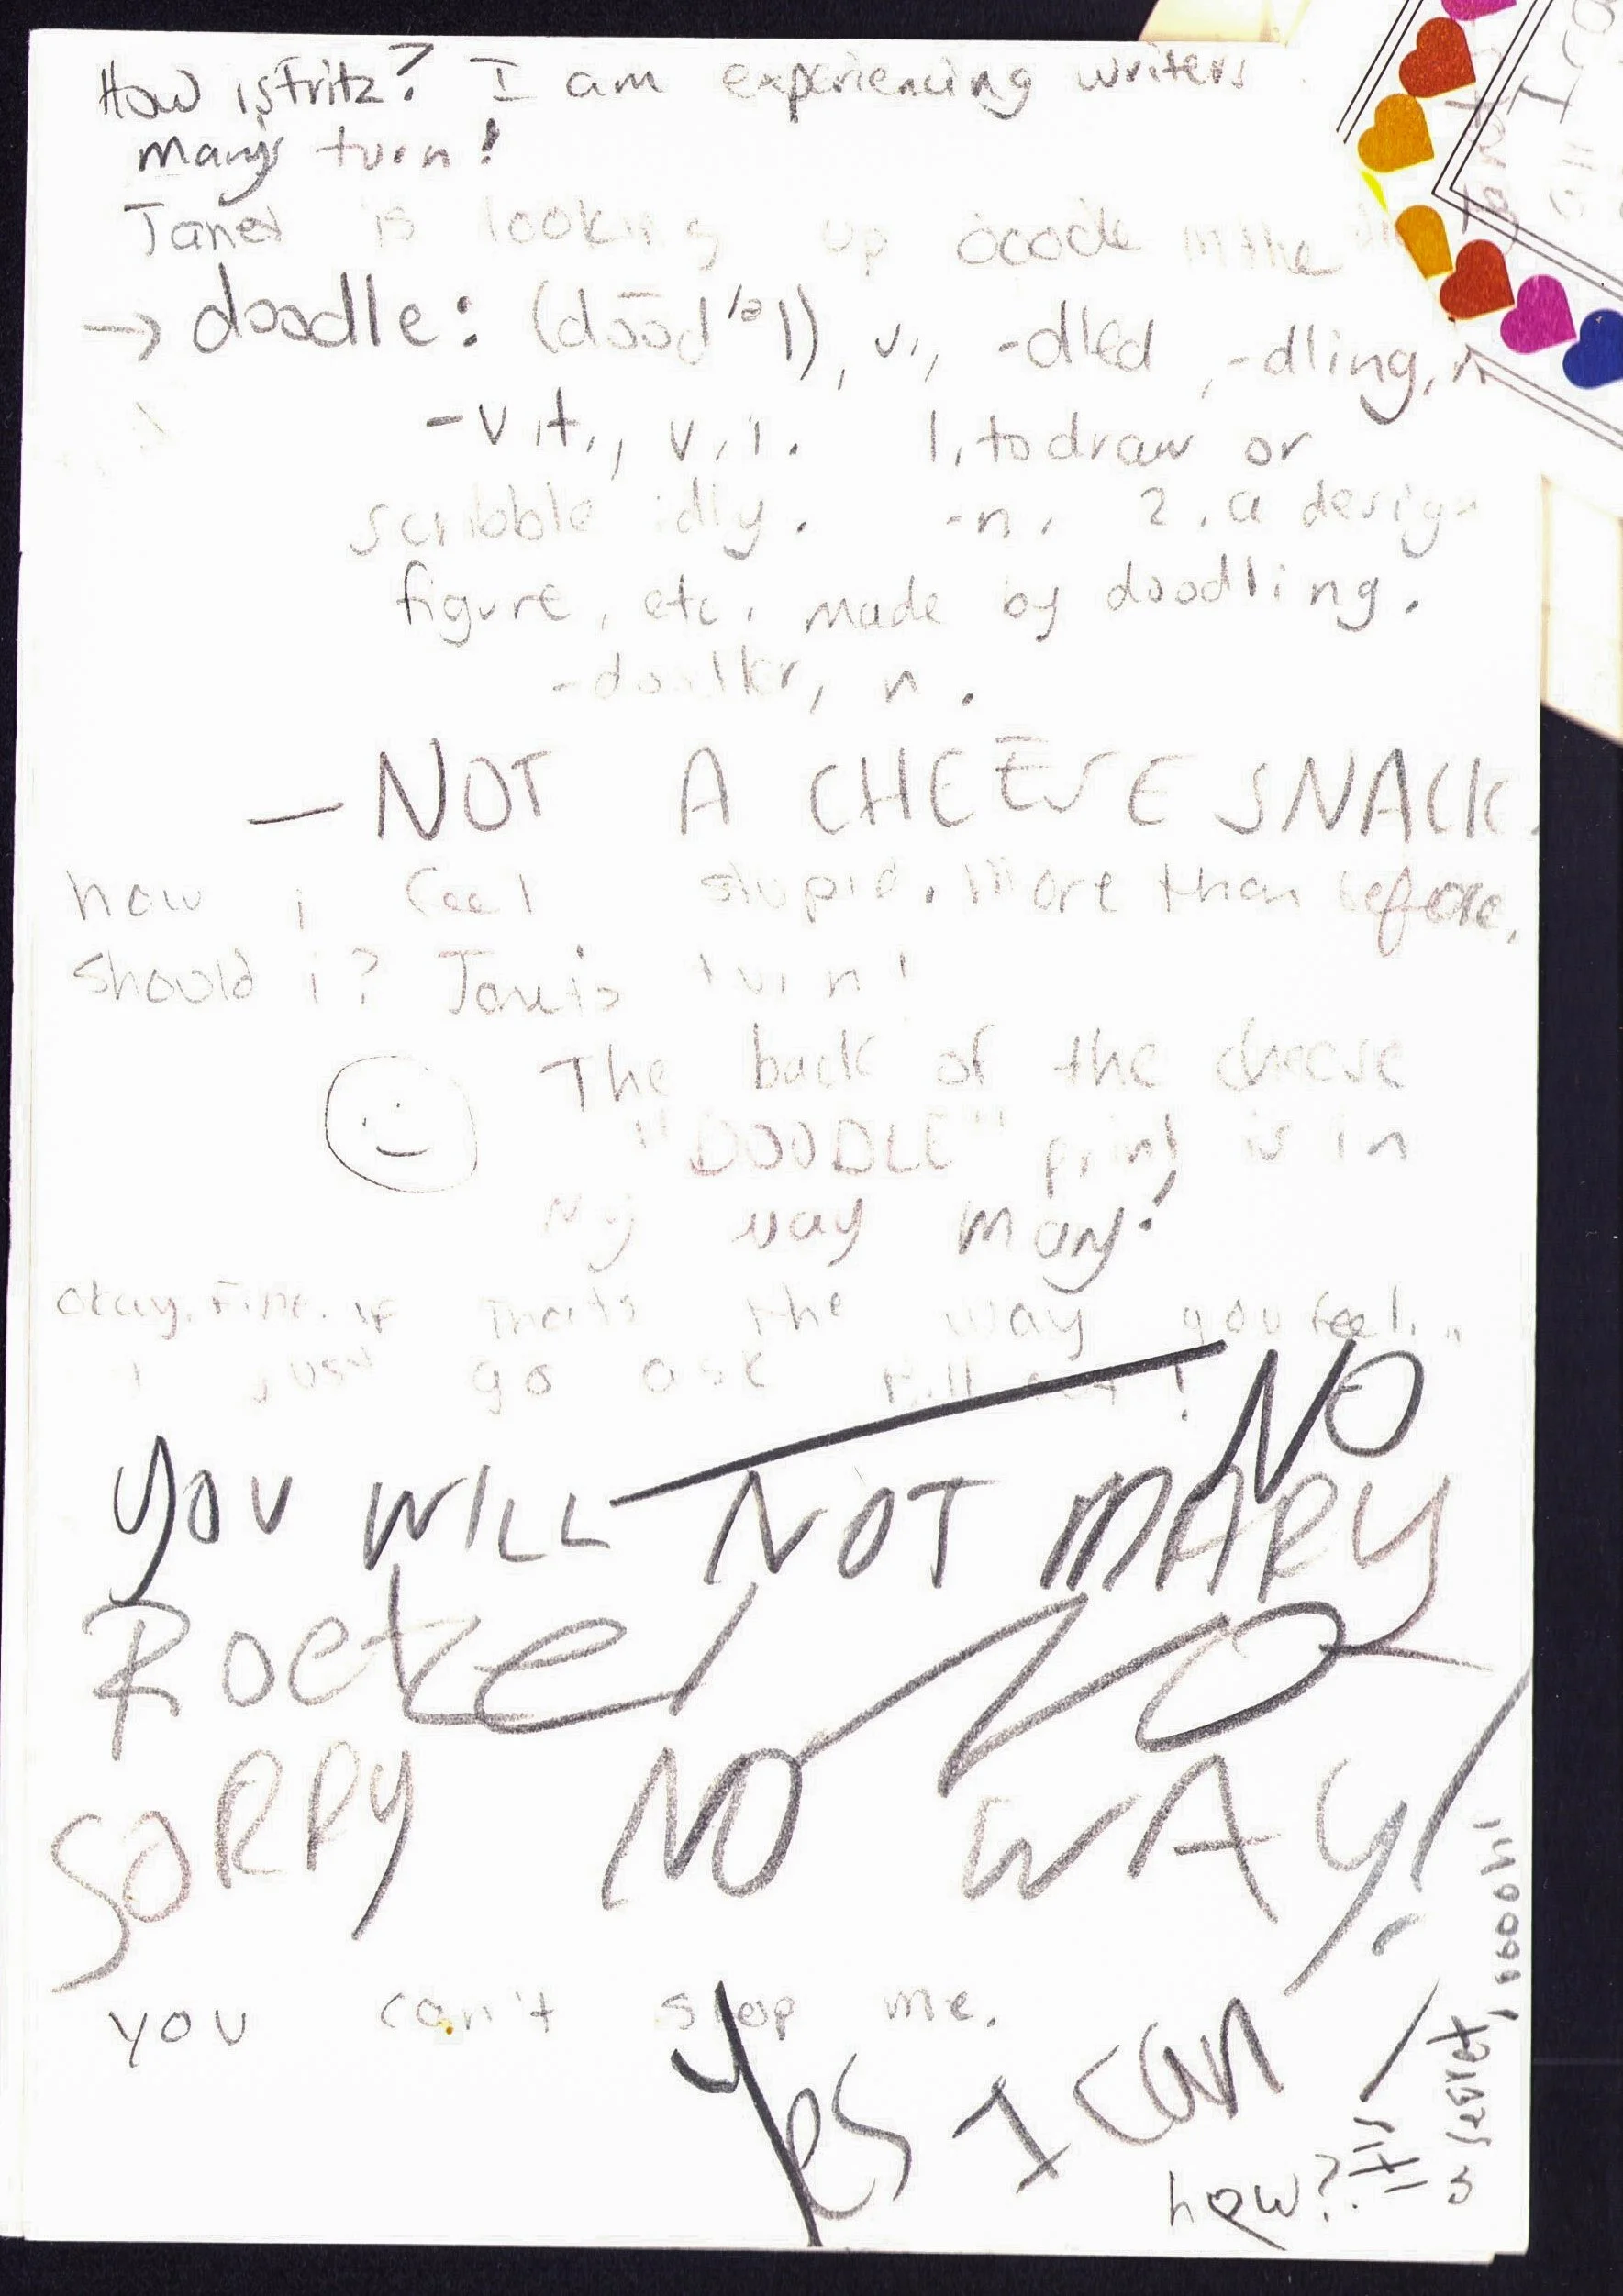 How is Fritz? I am experiencing writers
Mary's turn!
Janet is looking up doodle in the
→ doodle: (do͞od'əl), v., -dled, -dling, n
-v.t., v.i. 1. to draw or
scribble idly. -n. 2. a design
figure, etc. made by doodling.
-doodler, n.
— NOT A CHEESE SNACK.
now i feel stupid. More than before,
should i? Janets turn!
The back of the cheese
"DOODLE" print is in
My way Mary!
okay. Fine. if that's the way you feel..
I just go ask
NO
YOU WILL NOT MARY
NO
SORRY NO WAY!
you can't stop me.
Yes I can
how?
It's
a secret, ooohh